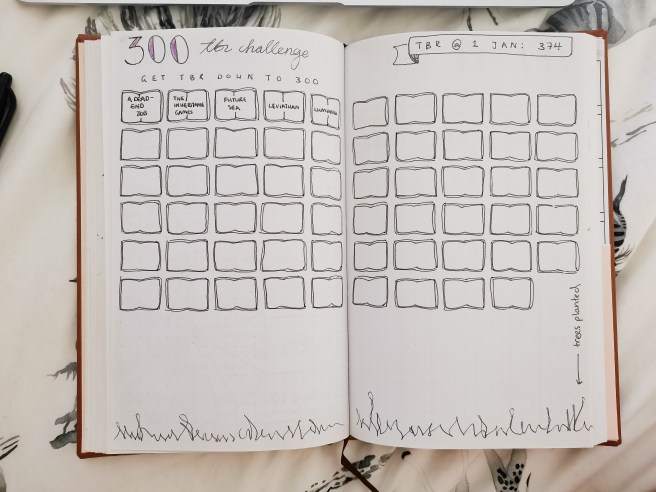 300 tbr challenge
GET TBR DOWN TO 300
A DEAD-
END
JOB
THE
INHERITANCE
GAMES
FUTURE
SEA
LEVIATHAN
TBR @ 1 JAN: 374
trees planted